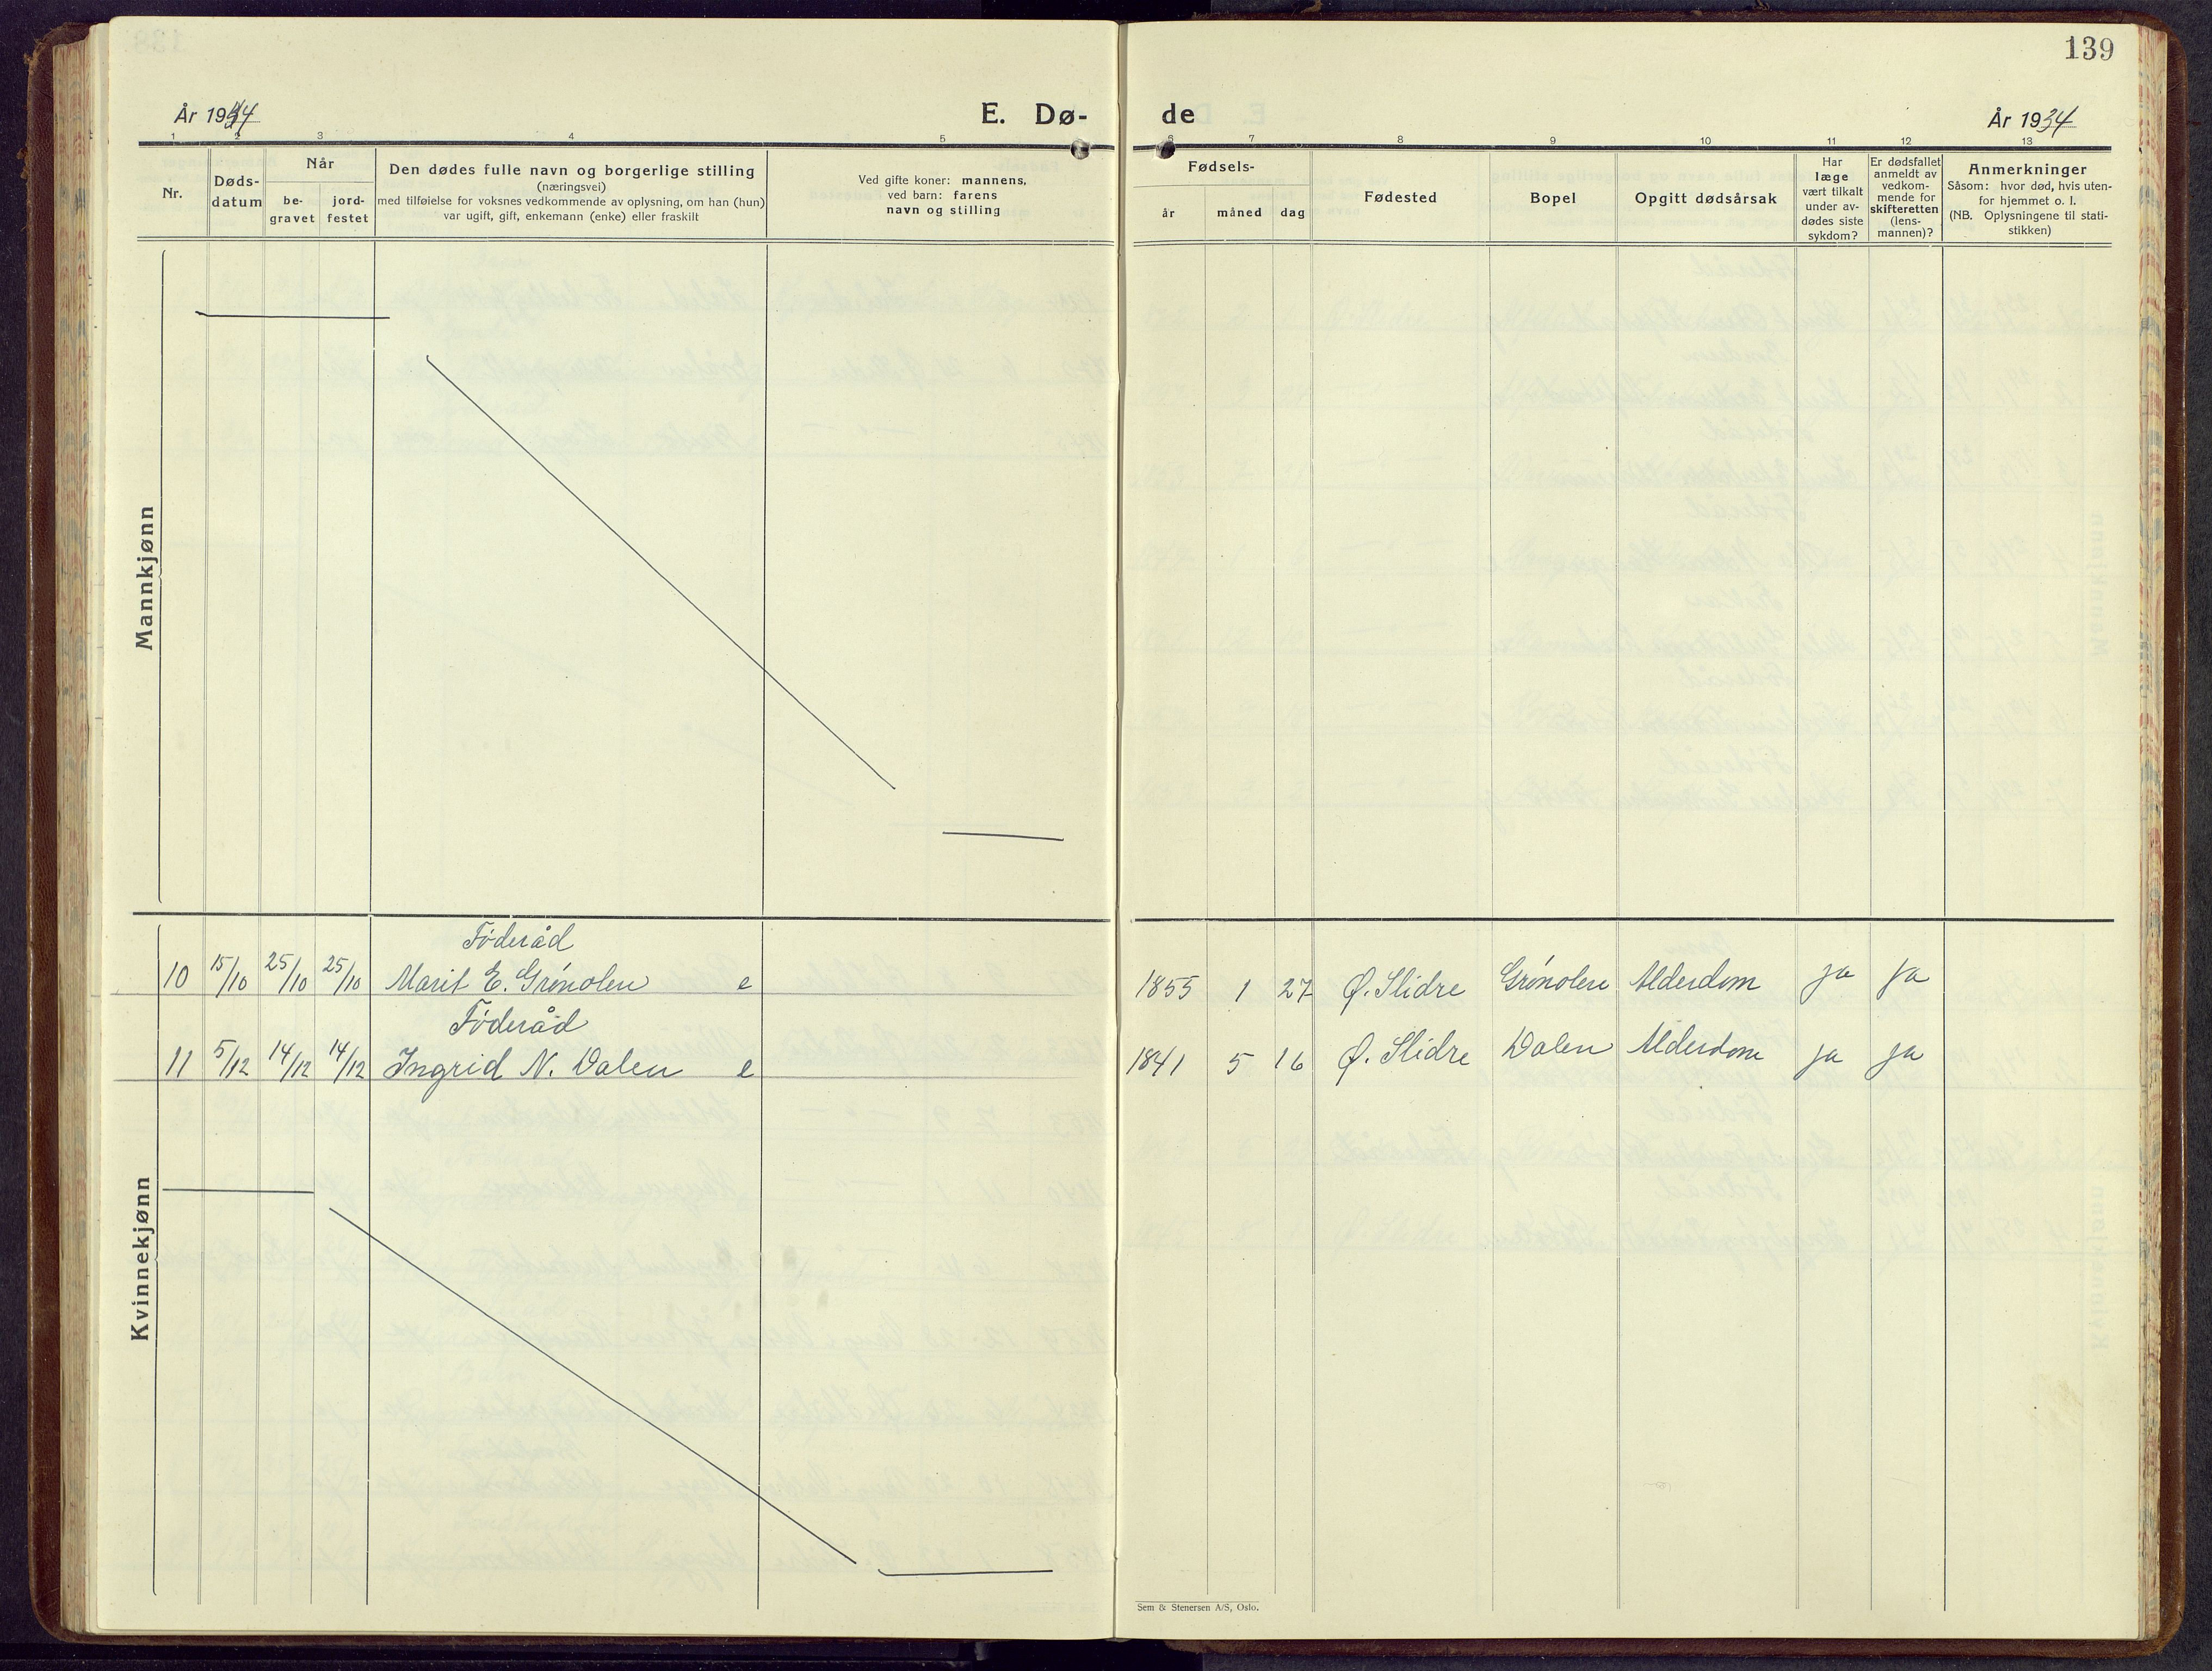 139
År 1934
E. Dø-
de
År 1934
1 2 3 4 5 6 7 8 9 10 11 12 13
Nr.
Døds-
datum
Når
be-
gravet
jord-
festet
Den dødes fulle navn og borgerlige stilling
(næringsvei)
med tilføielse for voksnes vedkommende av oplysning, om han (hun)
var ugift, gift, enkemann (enke) eller fraskilt
Ved gifte koner: mannens,
ved barn: farens
navn og stilling
Fødsels-
år
måned
dag
Fødested
Bopel
Opgitt dødsårsak
Har
læge
vært tilkalt
under av-
dødes siste
sykdom?
Er dødsfallet
anmeldt av
vedkom-
mende for
skifteretten
(lens-
mannen)?
Anmerkninger
Såsom: hvor død, hvis uten-
for hjemmet o. l.
(NB. Oplysningene til stati-
stikken)
Mannkjønn
Kvinnekjønn
Föderåd
10 15/10 25/10 25/10 Marit E. Grønolen e 1855 1 27 Ø. Slidre Grønolen Alderdom ja ja
Föderåd
11 5/12 14/12 14/12 Ingrid N. Dalen e 1841 5 16 Ø. Slidre Dalen Alderdom ja ja
Sem & Stenersen A/S, Oslo.